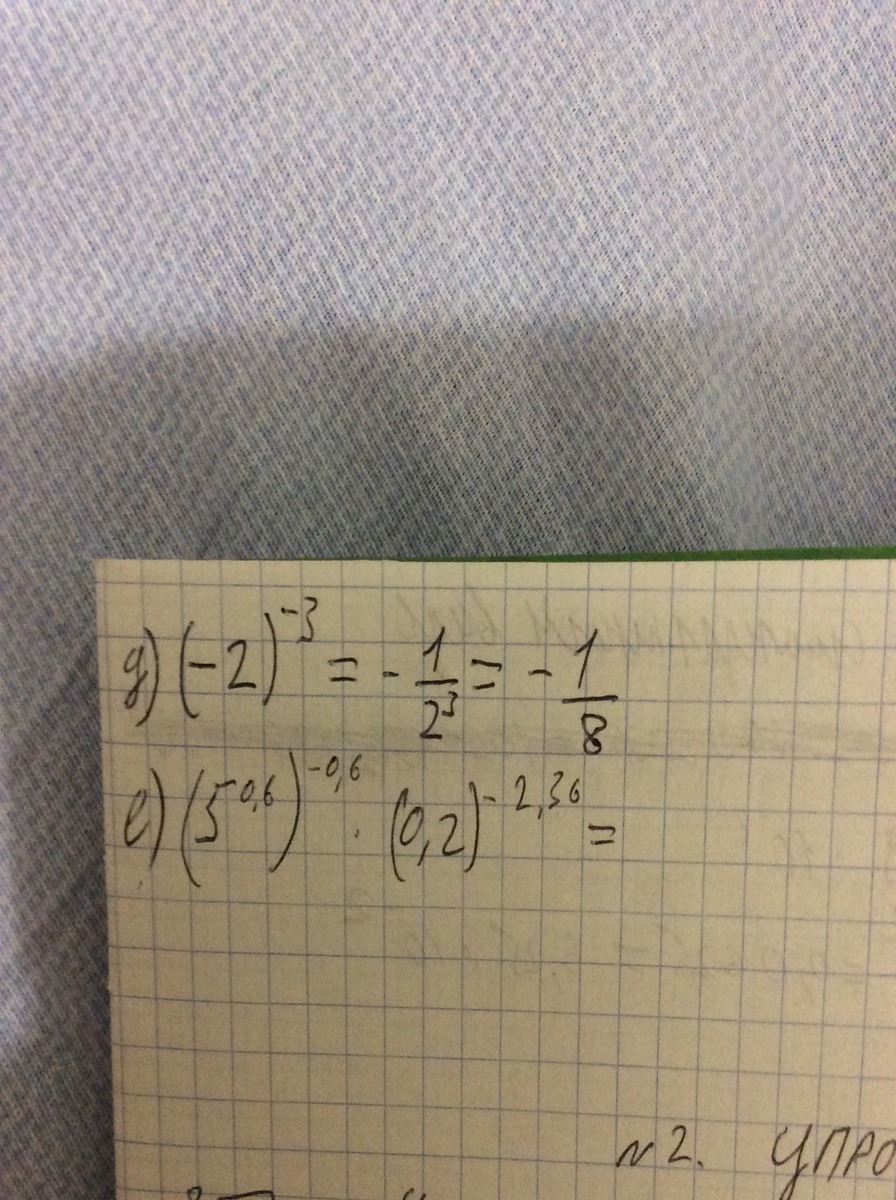 д) (-2)^-3 = - 1/2^3 = - 1/8
е) (5^0,6)^-0,6 · (0,2)^-2,36 =
N2. УПРО